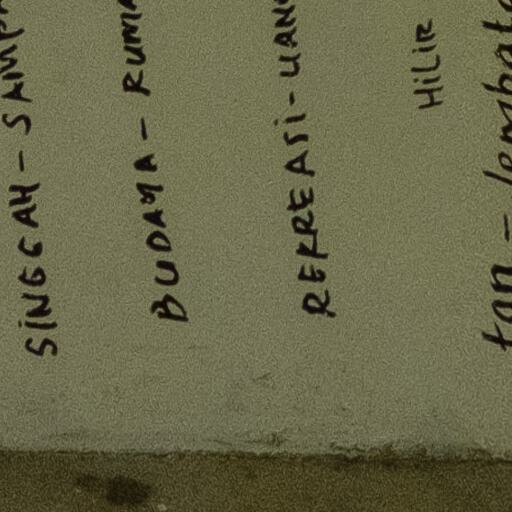 SiNGGAH - SAMP
BUDAYA - RUMA
REKREASi - UAN
HiLiR
tan - lembat